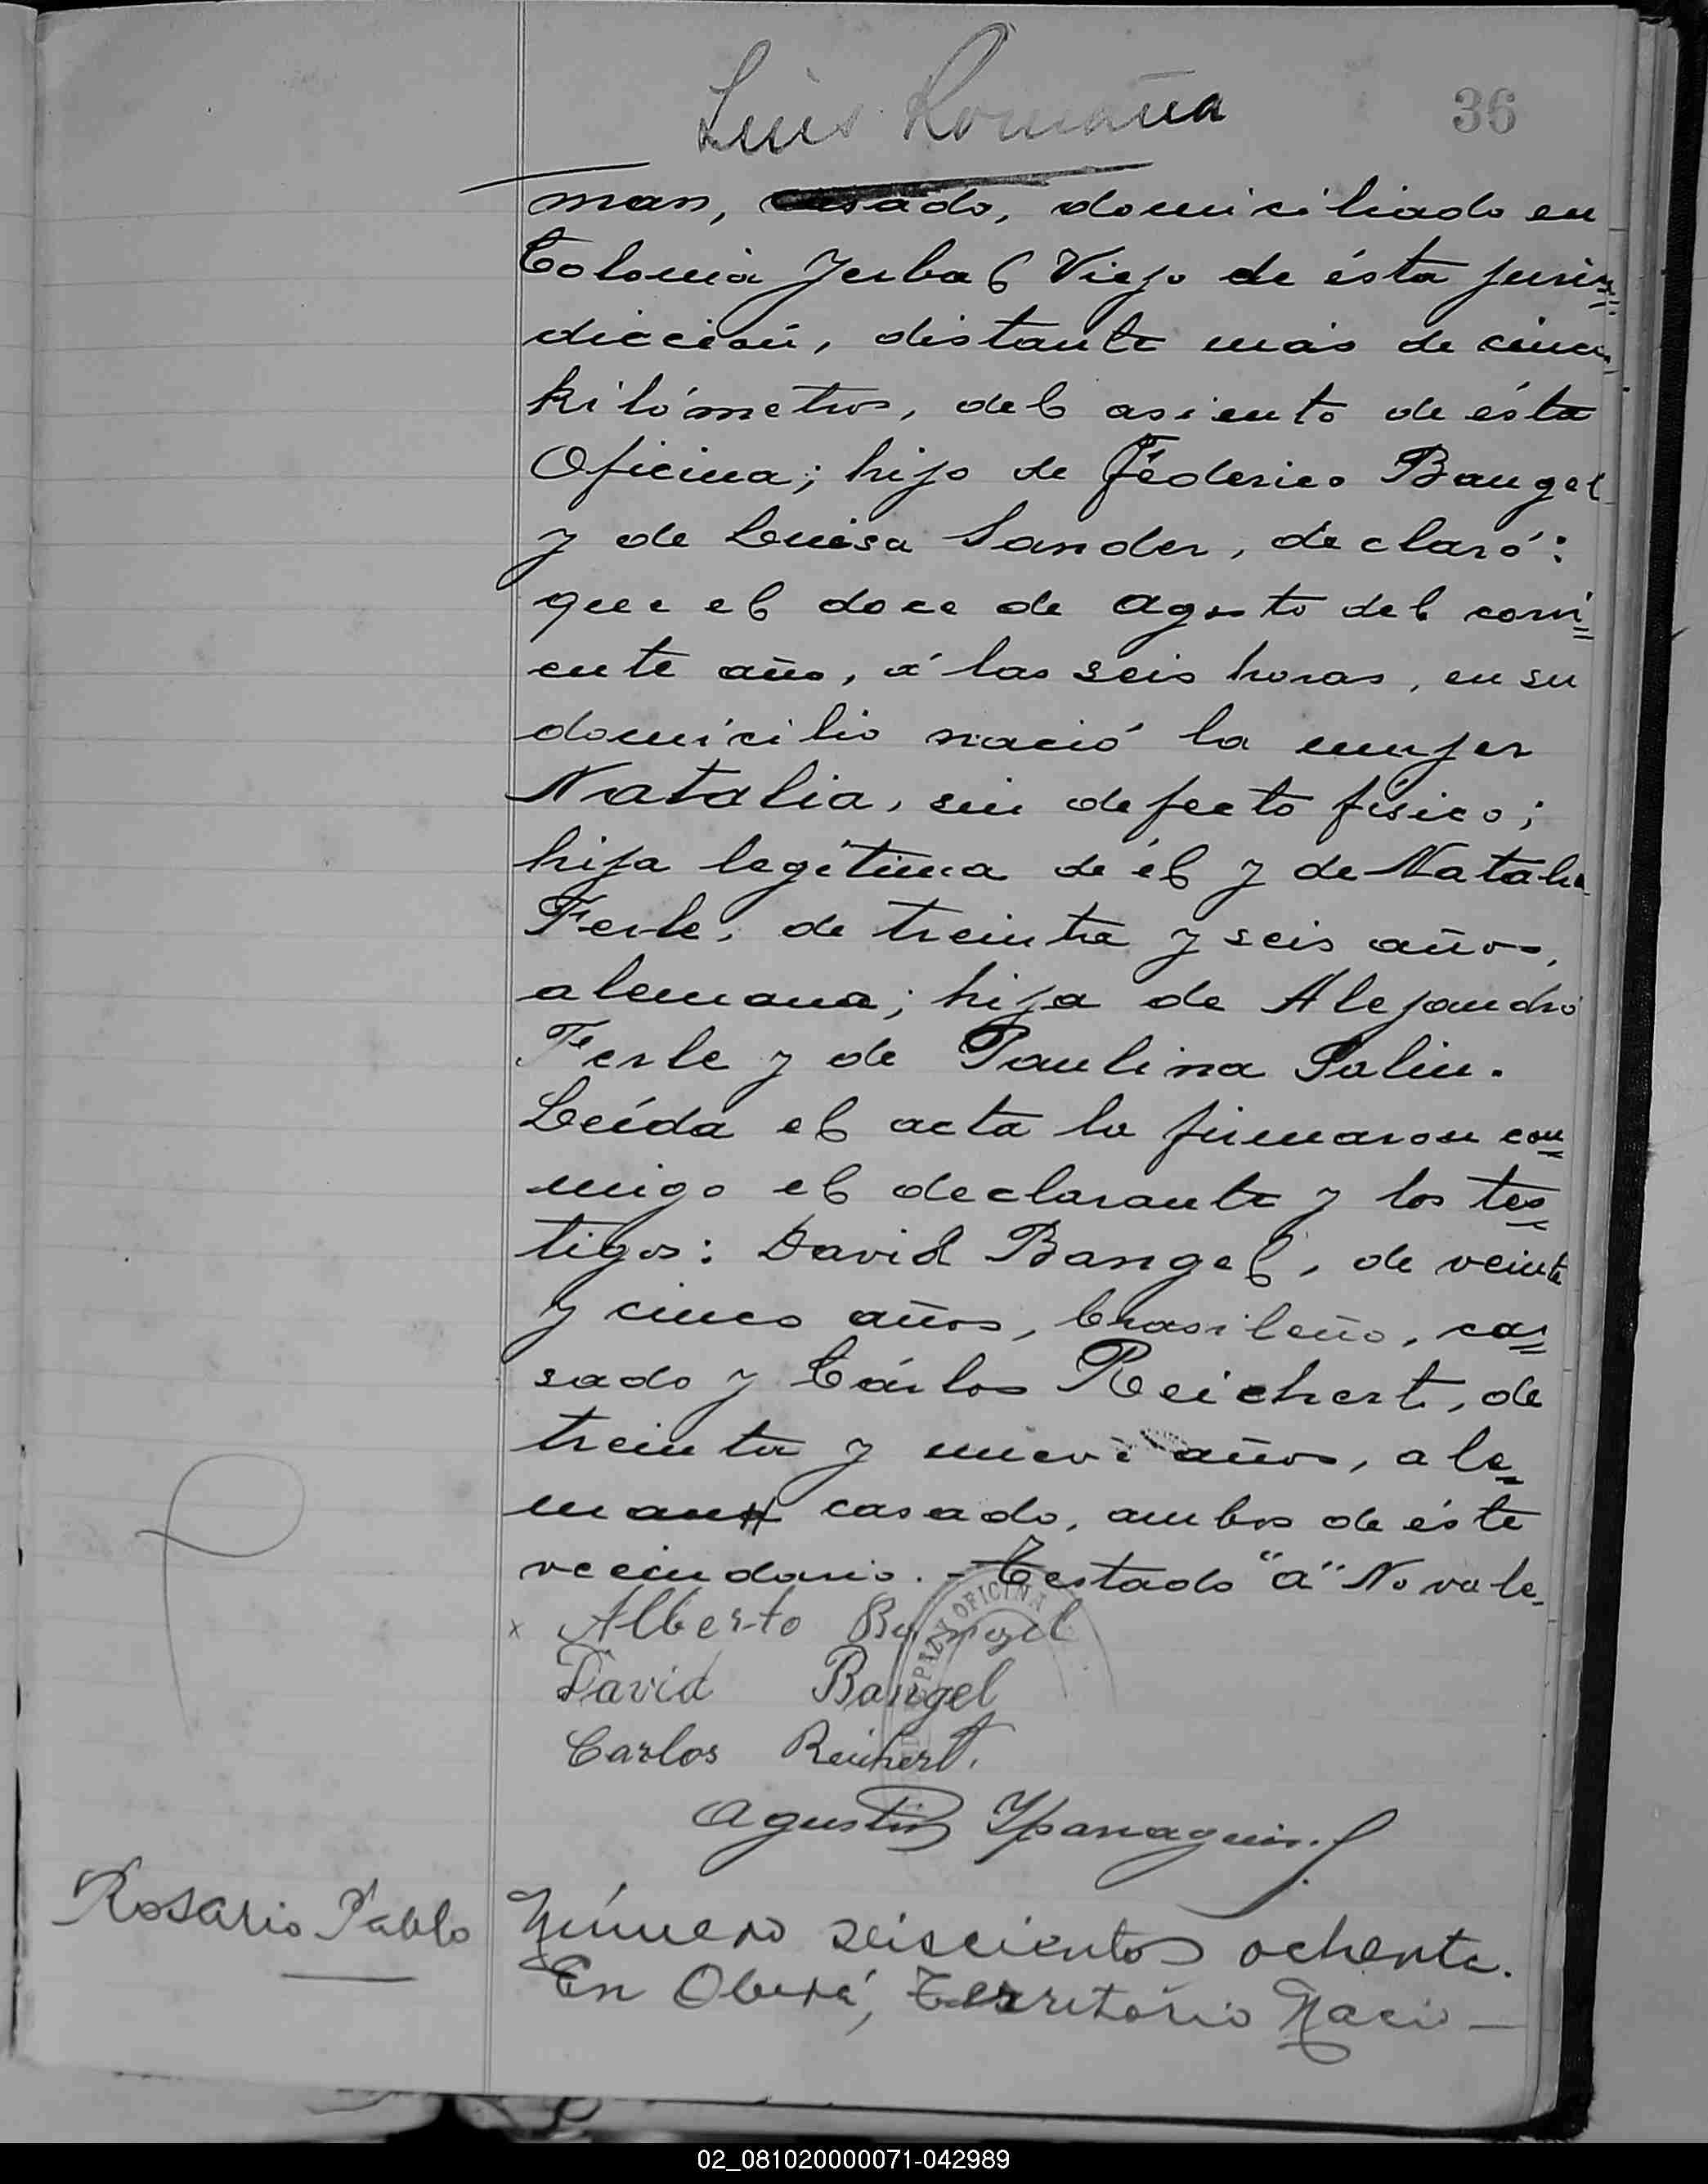 Luis Romaña
36
man, casado, domiciliado en
Colonia Yerbal Viejo de ésta juris=
dicción, distante más de cinco
kilómetros, del asiento de ésta
Oficina; hijo de Féderico Bangel
y de Luisa Sander, declaró:
que el doce de Agosto del corri=
ente año, á las seis horas, en su
domicilio nació la mujer
Natalia, sin defecto físico;
hija legítima de él y de Natalia
Ferle, de treinta y seis años,
alemana; hija de Alejandro
Ferle y de Paulina Salin.
Leída el acta la firmaron con=
migo el declarante y los tes=
tigos: David Bangel, de veinte
y cinco años, brasileño, ca=
sado y Cárlos Reichert, de
treinta y nueve años, ale=
man casado, ambos de éste
vecindario. - Testado "a" No vale.
x Alberto Bangel
David Bangel
Carlos Reichert.
OFICINA
Agustin
Rosario Pablo
Número seiscientos ochenta.
En Oberá, Territorio Nacio-
02_081020000071-042989